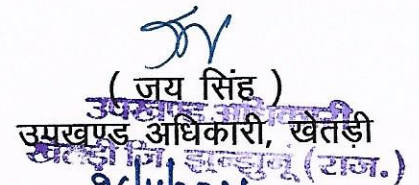 ( जय सिंह )
उपखण्ड अधिकारी
उपखण्ड अधिकारी, खेतड़ी
खेतड़ी जि. झुन्झुनूं (राज.)